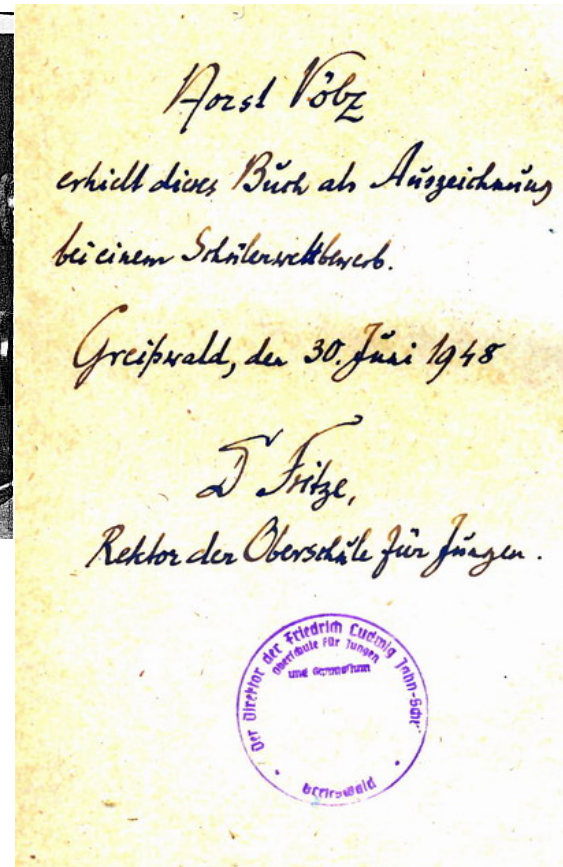 Horst Völz
erhielt dieses Buch als Auszeichnung
bei einem Schülerwettbewerb.
Greifswald, den 30. Juni 1948
D Fritze,
Rektor der Oberschule für Jungen.
Der Direktor der Friedrich Ludwig Jahn-Sch
Oberschule für Jungen
und Gymnasium
Greifswald